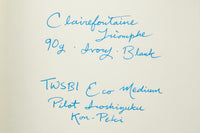 Clairefontaine
Triomphe
90g · Ivory · Blank
TWSBI Eco Medium
Pilot Iroshizuku
Kon-Peki